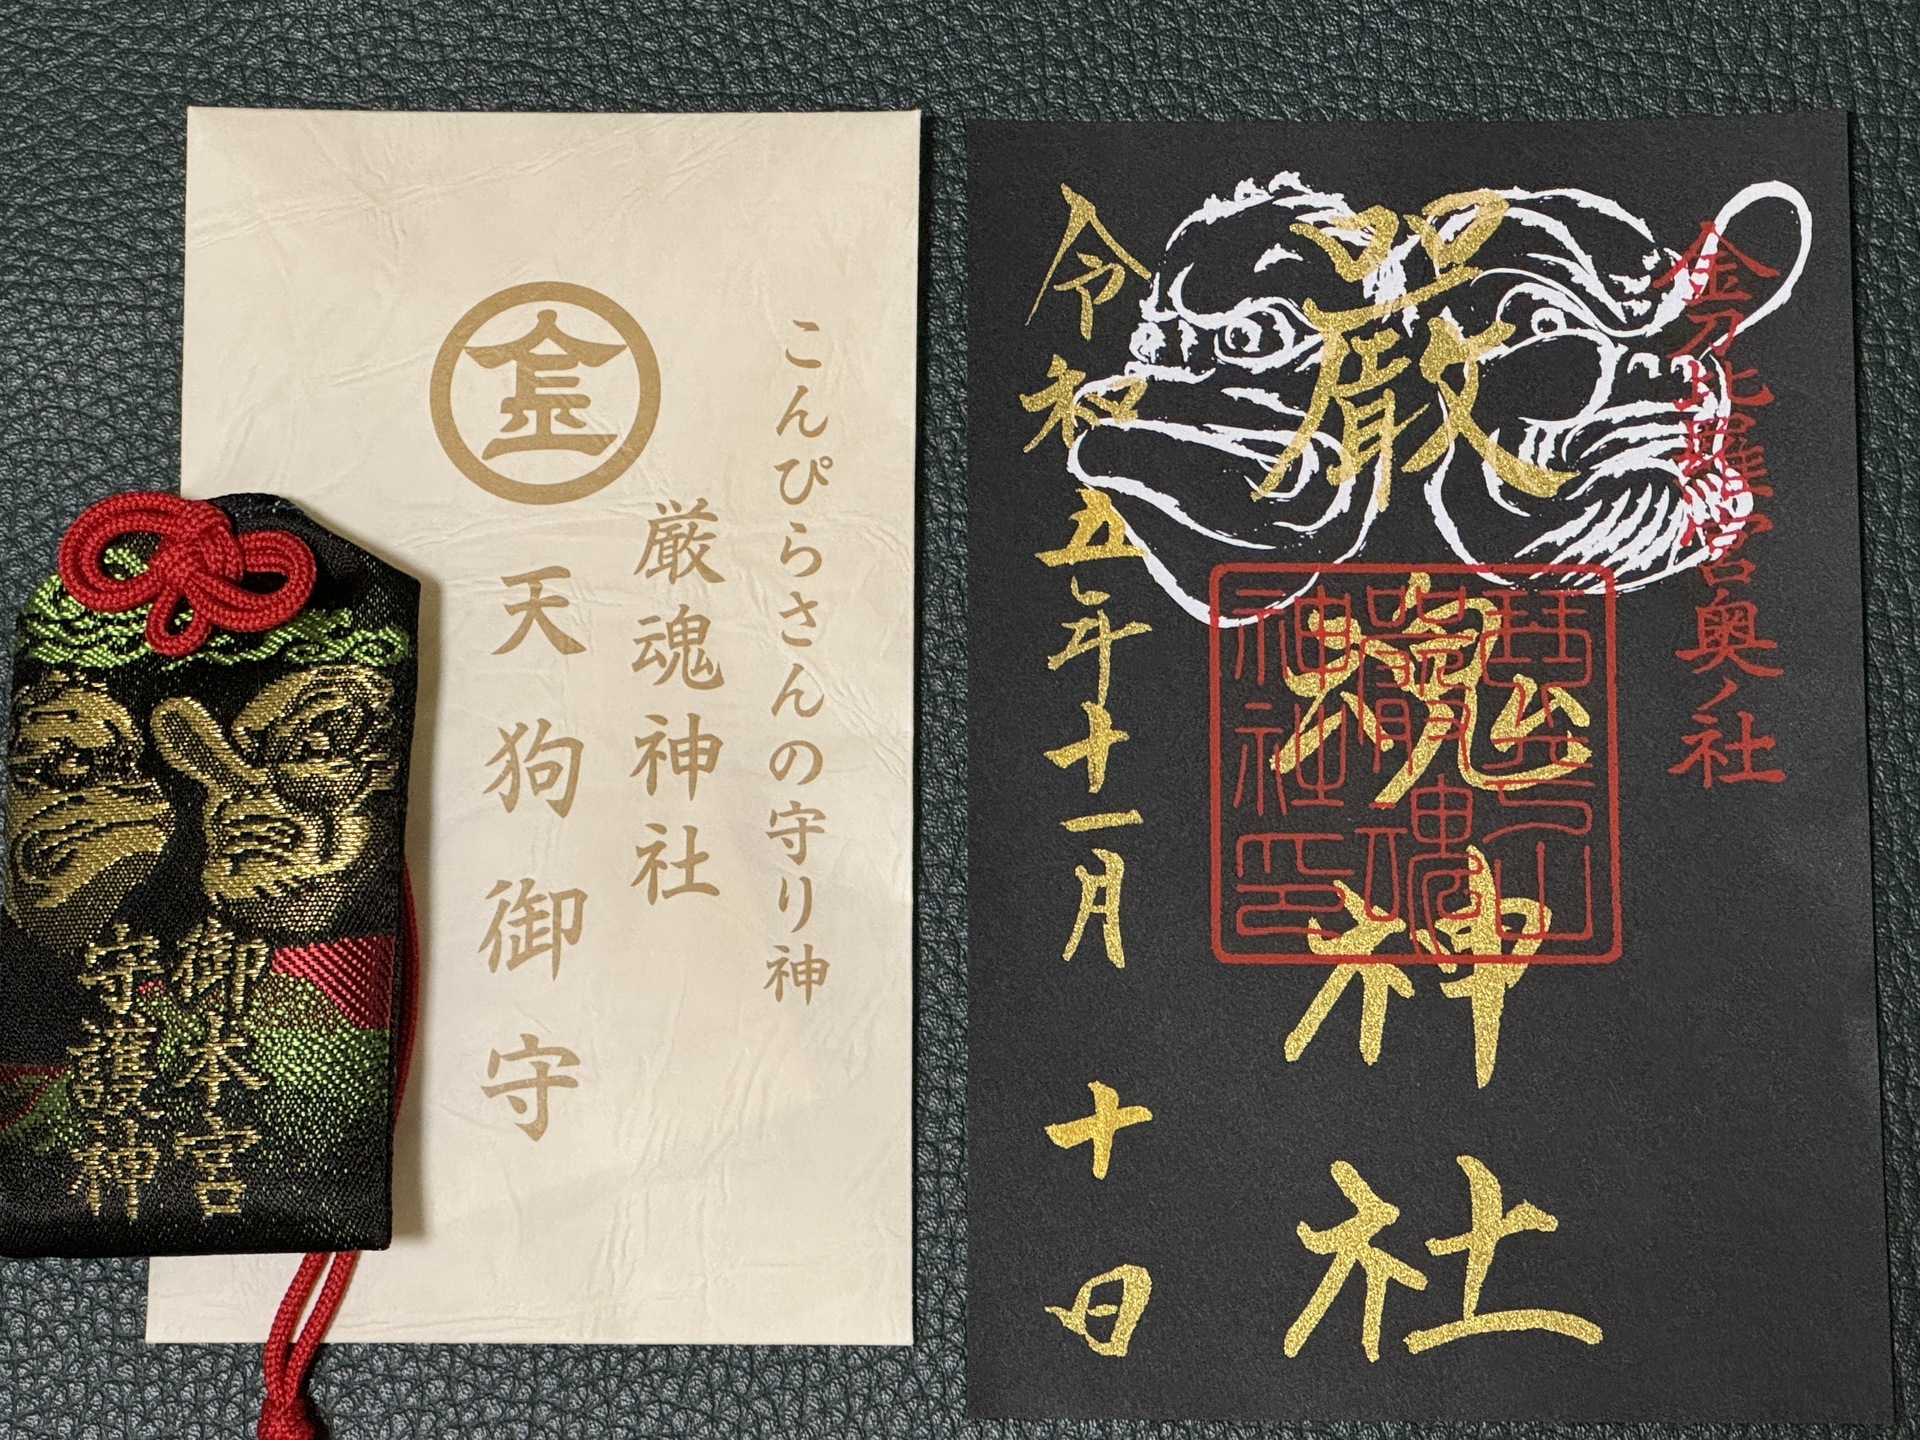 金
こんぴらさんの守り神
厳魂神社
天狗御守
御本宮
守護神
金刀比羅宮奥ノ社
嚴魂神社
琴平山
嚴魂
神社印
令和五年十一月十日